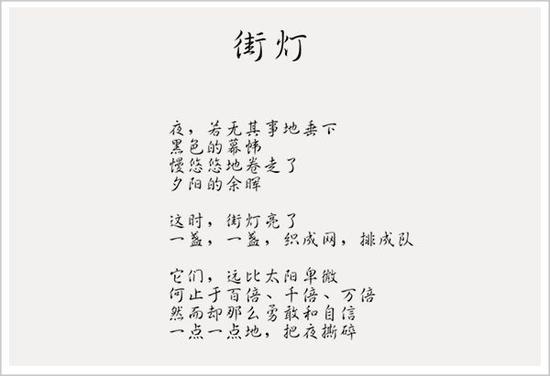 街灯
夜，若无其事地垂下
黑色的幕帏
慢悠悠地卷走了
夕阳的余晖
这时，街灯亮了
一盏，一盏，织成网，排成队
它们，远比太阳卑微
何止于百倍、千倍、万倍
然而却那么勇敢和自信
一点一点地，把夜撕碎